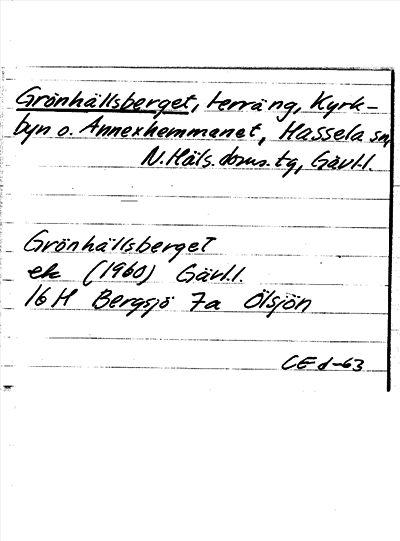 Grönhällsberget, terräng, Kyrk-
byn o. Annexhemmanet, Hassela sn,
N. Häls. doms. tg, Gävl.l.
Grönhällsberget
ek (1960) Gävl.l.
16 H Bergsjö 7a Ölsjön
CE d-63